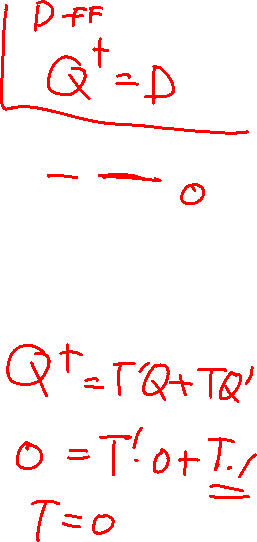 D-FF
Q⁺=D
— — 0
Q⁺=T'Q+TQ'
0=T'·0+T·1
T=0